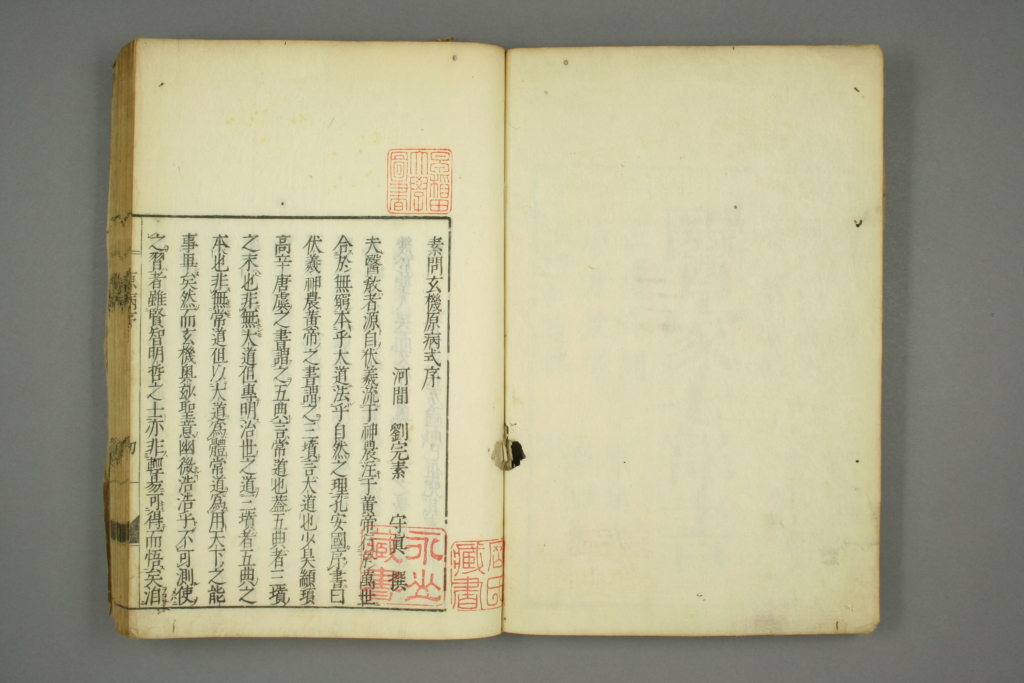 素問玄機原病式序
河間 劉完素 守真 撰
夫醫教者源自伏羲流于神農注于黄帝行於萬世
合於無窮本乎大道法乎自然之理孔安國序書曰
伏羲神農黄帝之書謂之三墳言大道也少昊顓頊
高辛唐虞之書謂之五典言常道也蓋五典者三墳
之末也非無大道但專明治世之道三墳者五典之
本也非無常道但以大道為體常道為用天下之能
事畢矣然而玄機奥妙聖意幽微浩浩乎不可測使
之習者雖賢智明哲之士亦非輕易可得而悟矣洎
早稲田大學圖書
藏書
藏書
原病序